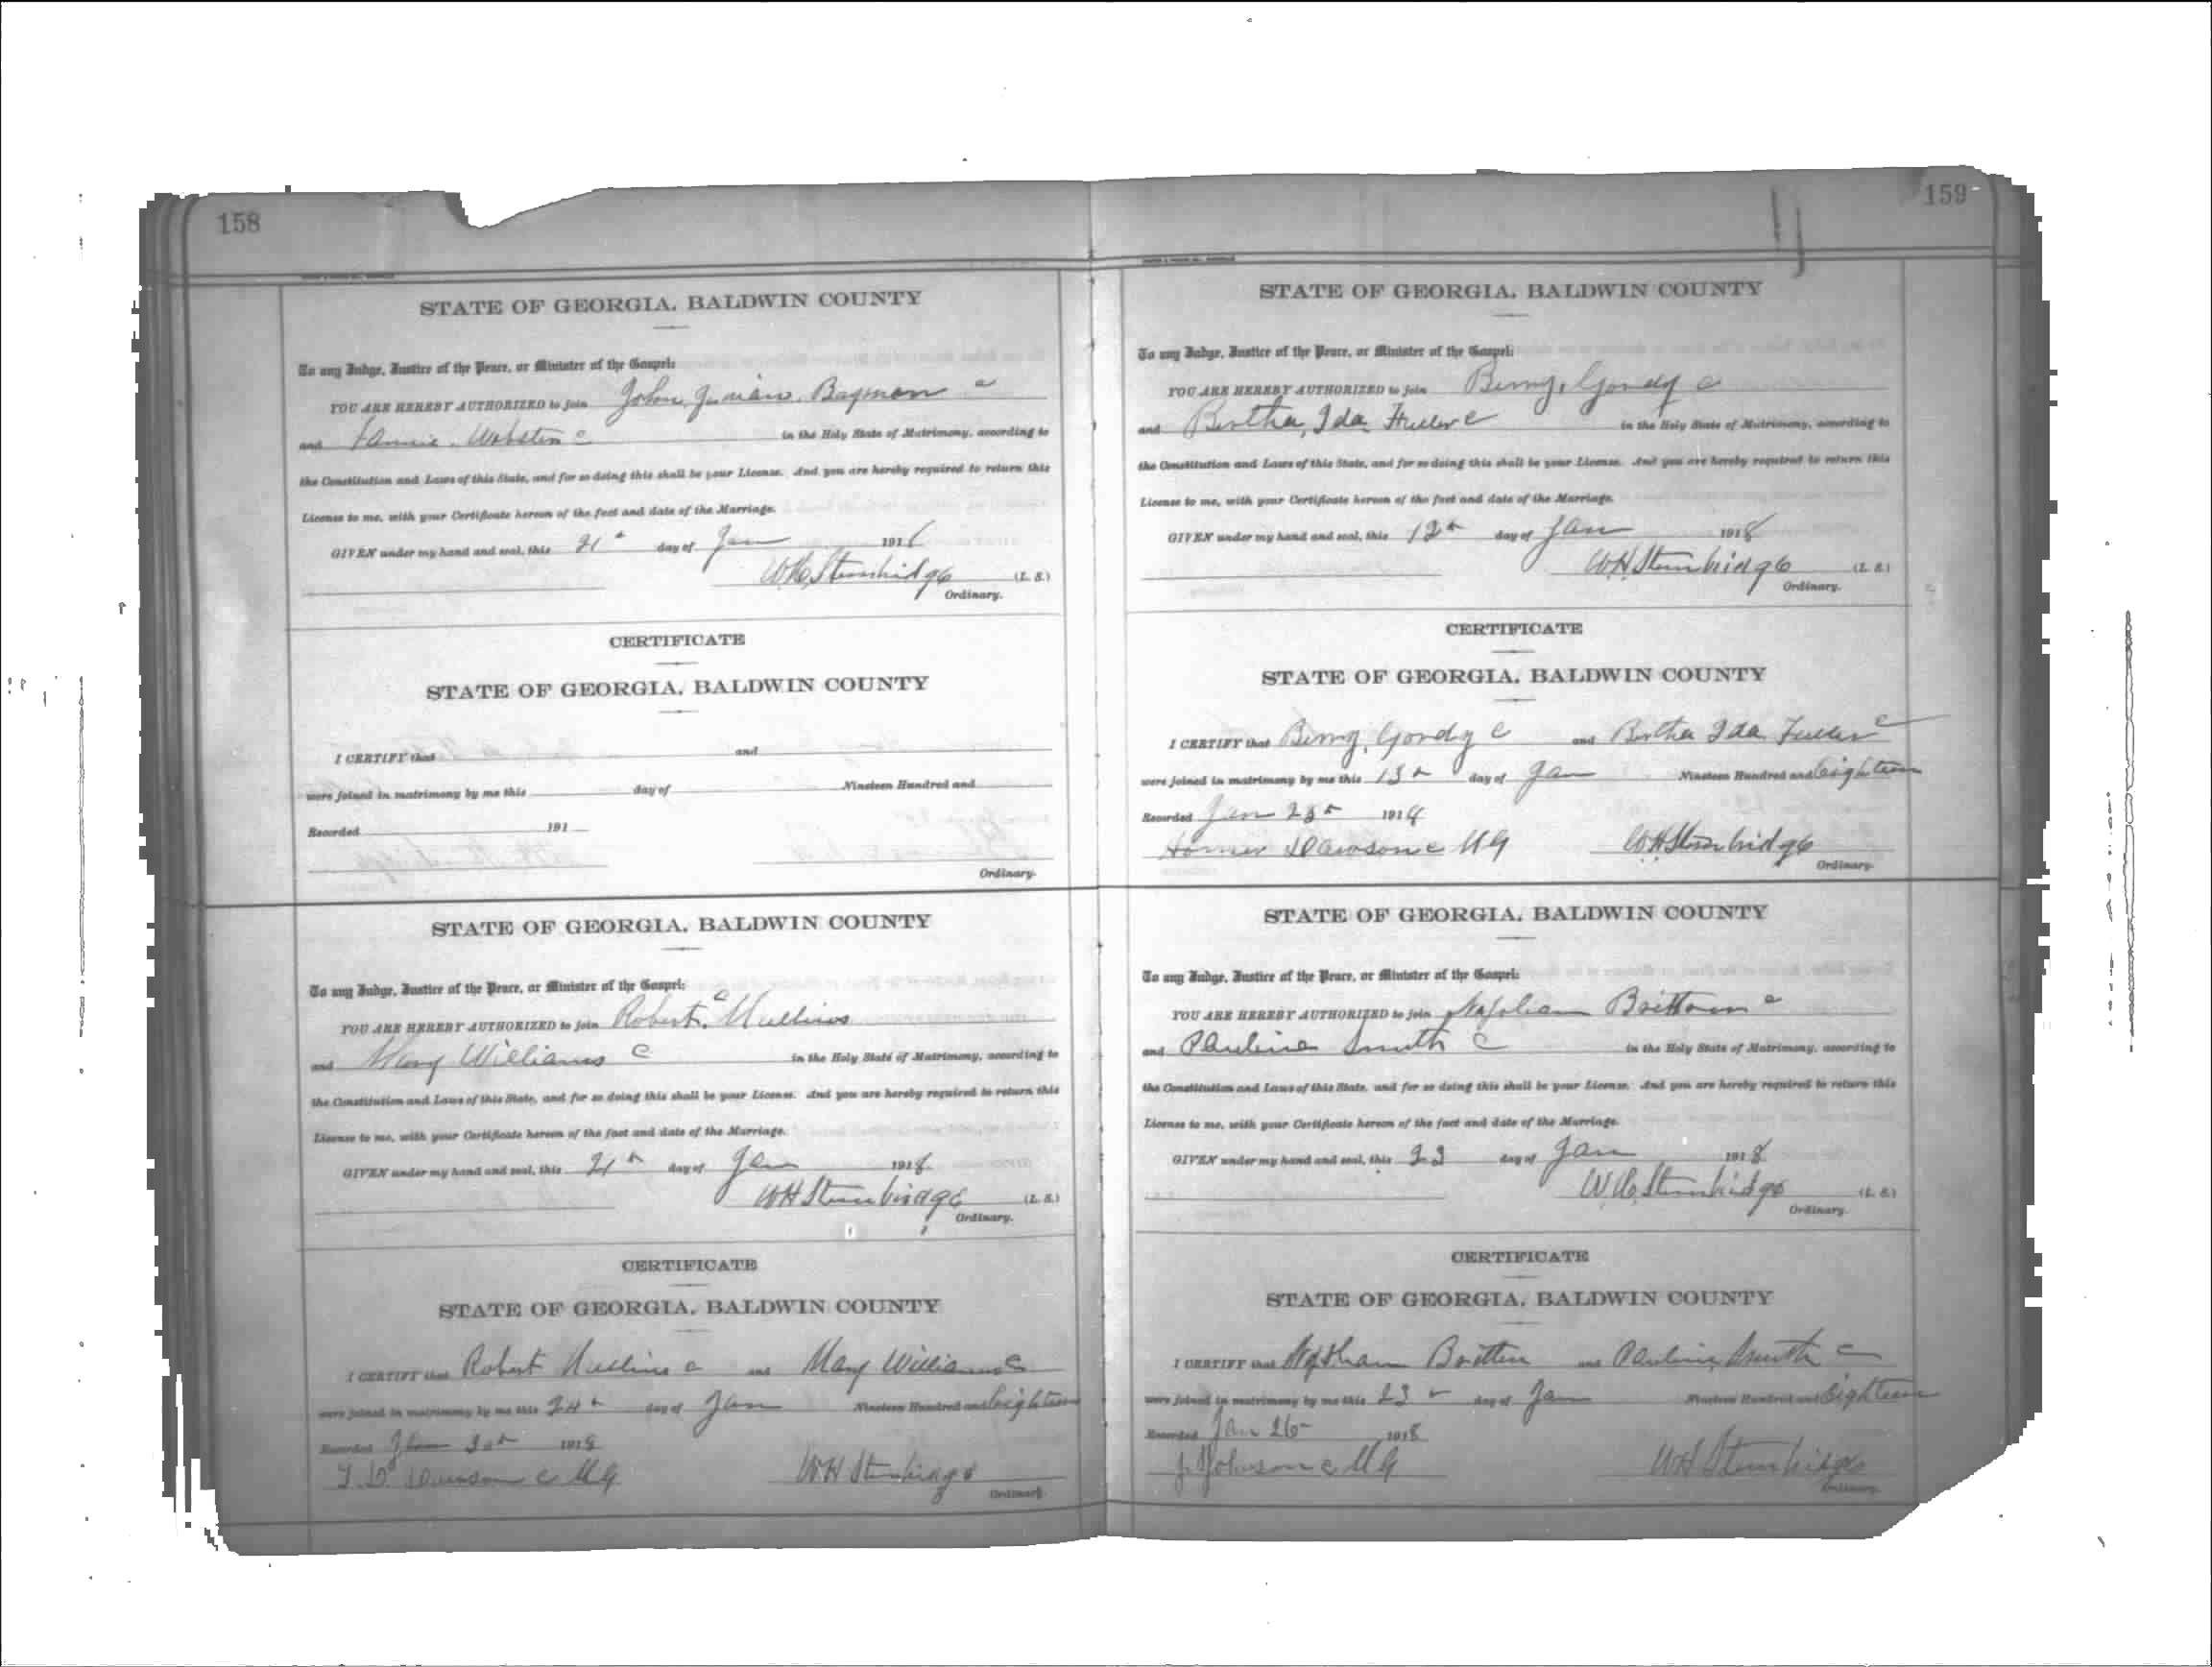 158
STATE OF GEORGIA, BALDWIN COUNTY
To any Judge, Justice of the Peace, or Minister of the Gospel:
YOU ARE HEREBY AUTHORIZED to join John Bayman c
and Fannie Webster c in the Holy State of Matrimony, according to
the Constitution and Laws of this State, and for so doing this shall be your License. And you are hereby required to return this
License to me, with your Certificate hereon of the fact and date of the Marriage.
GIVEN under my hand and seal, this 21 day of Jan 191
WH Stembridge (L. S.)
Ordinary.
CERTIFICATE
STATE OF GEORGIA, BALDWIN COUNTY
I CERTIFY that and
were joined in matrimony by me this day of Nineteen Hundred and
Recorded 191
Ordinary.
STATE OF GEORGIA, BALDWIN COUNTY
To any Judge, Justice of the Peace, or Minister of the Gospel:
YOU ARE HEREBY AUTHORIZED to join Robert c Mullins
and Mary Williams C in the Holy State of Matrimony, according to
the Constitution and Laws of this State, and for so doing this shall be your License. And you are hereby required to return this
License to me, with your Certificate hereon of the fact and date of the Marriage.
GIVEN under my hand and seal, this 21 day of Jan 1918
WH Stembridge (L. S.)
Ordinary.
CERTIFICATE
STATE OF GEORGIA, BALDWIN COUNTY
I CERTIFY that Robert Mullins c and Mary Williams C
were joined in matrimony by me this 24 day of Jan Nineteen Hundred and Eighteen
Recorded Jan 1918
Dawson c M G WH Stembridge
Ordinary
159
STATE OF GEORGIA, BALDWIN COUNTY
To any Judge, Justice of the Peace, or Minister of the Gospel:
YOU ARE HEREBY AUTHORIZED to join Berry, Gordy c
and Bertha, Ida Fuller c in the Holy State of Matrimony, according to
the Constitution and Laws of this State, and for so doing this shall be your License. And you are hereby required to return this
License to me, with your Certificate hereon of the fact and date of the Marriage.
GIVEN under my hand and seal, this 12 day of Jan 1918
WH Stembridge (L. S.)
Ordinary.
CERTIFICATE
STATE OF GEORGIA, BALDWIN COUNTY
I CERTIFY that Berry, Gordy C and Bertha Ida Fuller c
were joined in matrimony by me this 13 day of Jan Nineteen Hundred and Eighteen
Recorded Jan 1918
Homer Dawson c M G WH Stembridge
Ordinary
STATE OF GEORGIA, BALDWIN COUNTY
To any Judge, Justice of the Peace, or Minister of the Gospel:
YOU ARE HEREBY AUTHORIZED to join c
and Pauline Smith C in the Holy State of Matrimony, according to
the Constitution and Laws of this State, and for so doing this shall be your License. And you are hereby required to return this
License to me, with your Certificate hereon of the fact and date of the Marriage.
GIVEN under my hand and seal, this 23 day of Jan 1918
WH Stembridge (L. S.)
Ordinary.
CERTIFICATE
STATE OF GEORGIA, BALDWIN COUNTY
I CERTIFY that Britten and Pauline Smith c
were joined in matrimony by me this 23 day of Jan Nineteen Hundred and Eighteen
Recorded Jan 26 1918
J. Johnson c M G WH Stembridge
Ordinary.